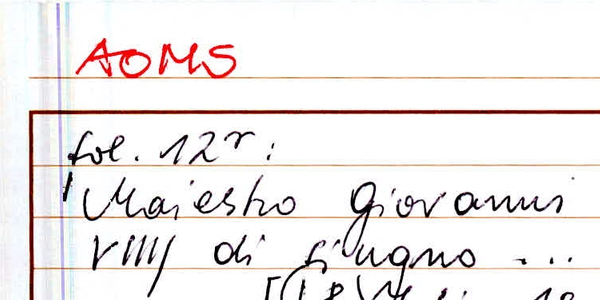 AOMS
fol. 12r:
Maiestro Giovanni
VIIII di giugno ...